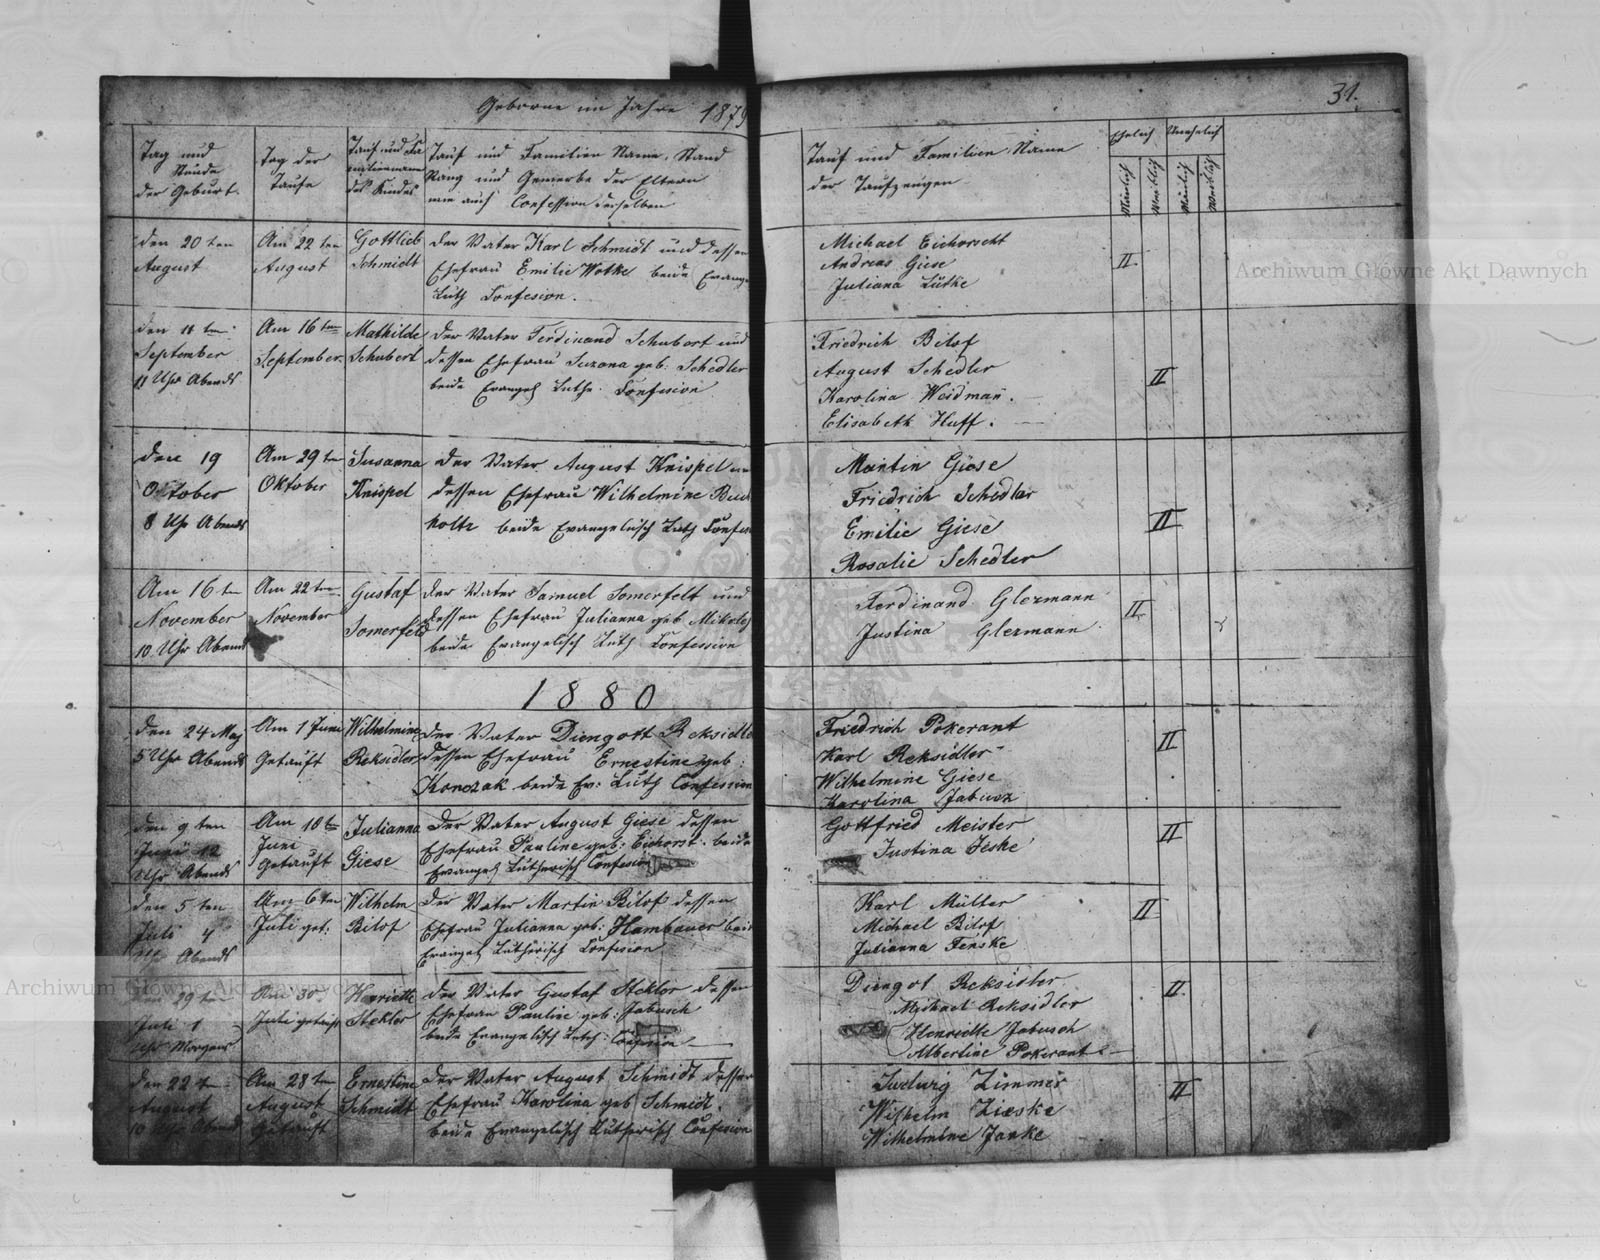 Geborne im Jahre 1879
31.
Tag und
Stunde
der Geburt.
Tag der
Taufe
Tauf und Fa
milienname
des Kindes
Tauf und Familien Name, Stand
Rang und Gewerbe der Eltern
wie auch Confession derselben
Tauf und Familien Name
der Taufzeugen
Ehelich
Unehelich
Mänlich
Weiblich
Mänlich
Weiblich
den 20 ten
August
Am 22 ten
August
Gottlieb
Schmidt
der Vater Karl Schmidt und dessen
Ehefrau Emilie Wotke beide Evange
Luth Confesion.
Michael Eichorscht
Andreas Giese
Juliana Lüdke
II.
den 11 ten
September
11 Uhr Abends
Am 16 ten
September.
Mathilde
Schubert
der Vater Ferdinand Schubert und
dessen Ehefrau Suzana geb: Schedler
beide Evangeh Luthe. Confesion
Friedrich Bilof
August Schedler
Karolina Weidman.
Elisabeth Huff.
II
den 19
Oktober
8 Uhr Abends
Am 29 ten
Oktober
Susanna
Knispel
der Vater August Knispel un
dessen Ehefrau Wilhelmine Buch
holtz beide Evangelisch Luth Confes
Martin Giese
Friedrich Schedler
Emilie Giese
Rosalie Schedler
II
Am 16 ten
November
10 Uhr Abends
Am 22 ten
November
Gustaf
Somerfeld
der Vater Samuel Somerfelt und
dessen Ehefrau Julianna geb Mikolej
beide Evangelisch Luth Confession
Ferdinand Glezmann
Justina Glezmann.
II.
1880
den 24 Maj
5 Uhr Abends
Am 1 Juni
Getauft
Wilhelmine
Reksidler
der Vater Diengott Reksidle
dessen Ehefrau Ernestine geb:
Konczak beide Ev: Luth Confession
Friedrich Pokerant
Karl Reksidler
Wilhelmine Giese
Karolina Jabusz
II
den 9 ten
Juni 12
Uhr Abends
Am 10 ten
Juni
Getauft
Julianna
Giese
der Vater August Giese dessen
Ehefrau Pauline geb: Eichorst. beide
Evangeh Lutherisch Confesion
Gottfried Meister
Justina Jeske
II
den 5 ten
Juli 4
Uhr Abends
Am 6 ten
Juli get:
Wilhelm
Bilof
der Vater Martin Bilof dessen
Ehefrau Julianna geb: Hambauer beide
Evangeh Lutherisch Confesion
Karl Müller
Michael Bilof
Julianna Fenske
II
den 29 ten
Juli 1
Uhr Morgens
Am 30
Juli getauft
Henriette
Stekler
der Vater Gustaf Stekler dessen
Ehefrau Pauline geb: Jabusch
beide Evangelisch Luth: Confesion
Diengot Reksidler
Michael Reksidler
Henriette Jabusch
Albertine Pokerant
II.
den 22 ten
August
10 Uhr Abend
Am 28 ten
August
Getauft
Ernestine
Schmidt
der Vater August Schmidt dessen
Ehefrau Karolina geb Schmidt.
beide Evangelisch Lutherisch Confesion
Ludwig Zimmer
Wilhelm Zieske
Wilhelmine Janke
II
Archiwum Główne Akt Dawnych
Archiwum Główne Akt Dawnych